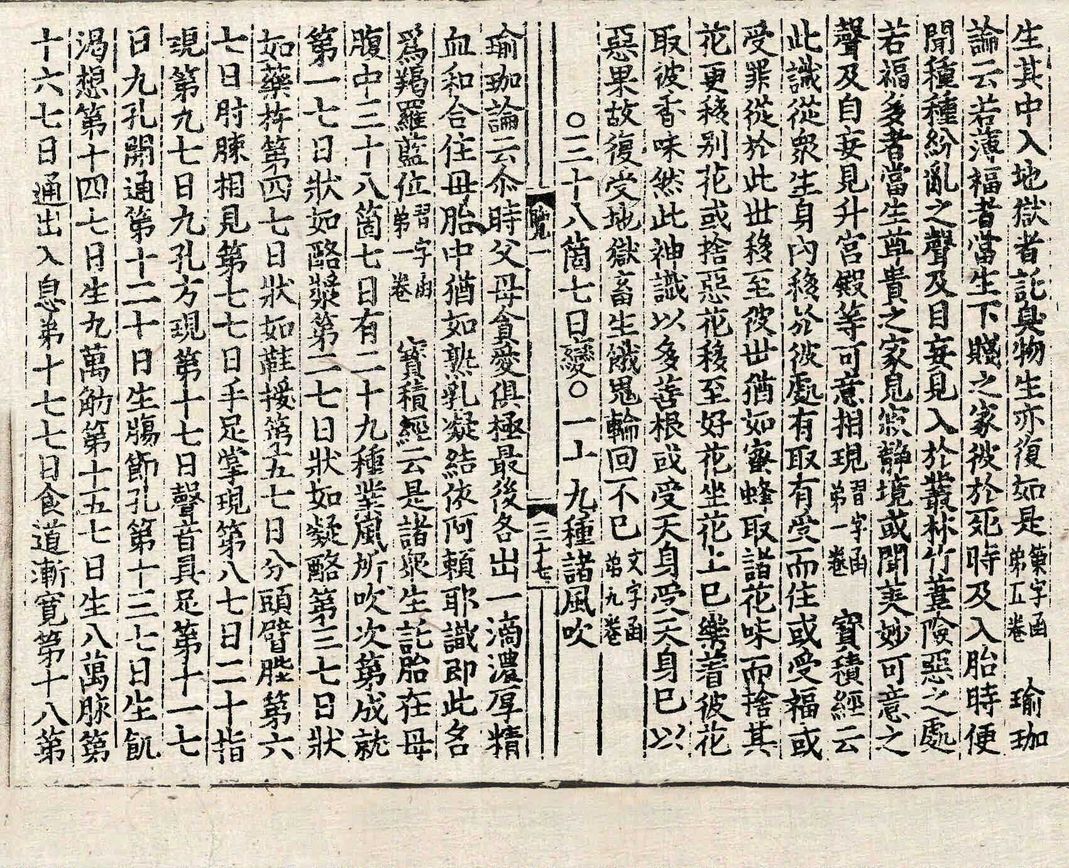 生其中入地獄者託臭物生亦復如是彙字函第五卷　瑜珈
論云若薄福者當生下賤之家彼於死時及入胎時便
聞種種紛亂之聲及目妄見入於叢林竹葦險惡之處
若福多者當生尊貴之家見寂靜境或聞美妙可意之
聲及自妄見升宮殿等可意相現習字函弟一卷　寶積經云
此識從眾生身內移於彼處有取有受而住或受福或
受罪從於此世移至彼世猶如蜜蜂取諸花味而捨其
花更移别花或捨惡花移至好花坐花上已樂着彼花
取彼香味然此神識以多善根或受天身受天身已以
惡果故復受地獄畜生餓鬼輪回不已文字函弟九卷
○三十八箇七日變○二十九種諸風吹
覽一　三十七
瑜珈論云尒時父母貪愛俱極最後各出一滴濃厚精
血和合住母胎中猶如熟乳凝結依阿賴耶識即此名
為羯羅藍位習字函弟一卷　寶積經云是諸眾生託胎在母
腹中三十八箇七日有二十九種業風所吹次第成就
第一七日狀如酪漿第二七日狀如凝酪第三七日狀
如藥杵第四七日狀如鞋楥第五七日分頭臂胜第六
七日肘膝相見第七七日手足掌現第八七日二十指
現第九七日九孔方現第十七日聲音具足第十一七
日九孔開通第十二七日生腸節孔第十三七日生飢
渴想第十四七日生九萬觔第十五七日生八萬脉第
十六七日通出入息弟十七七日食道漸寬第十八第